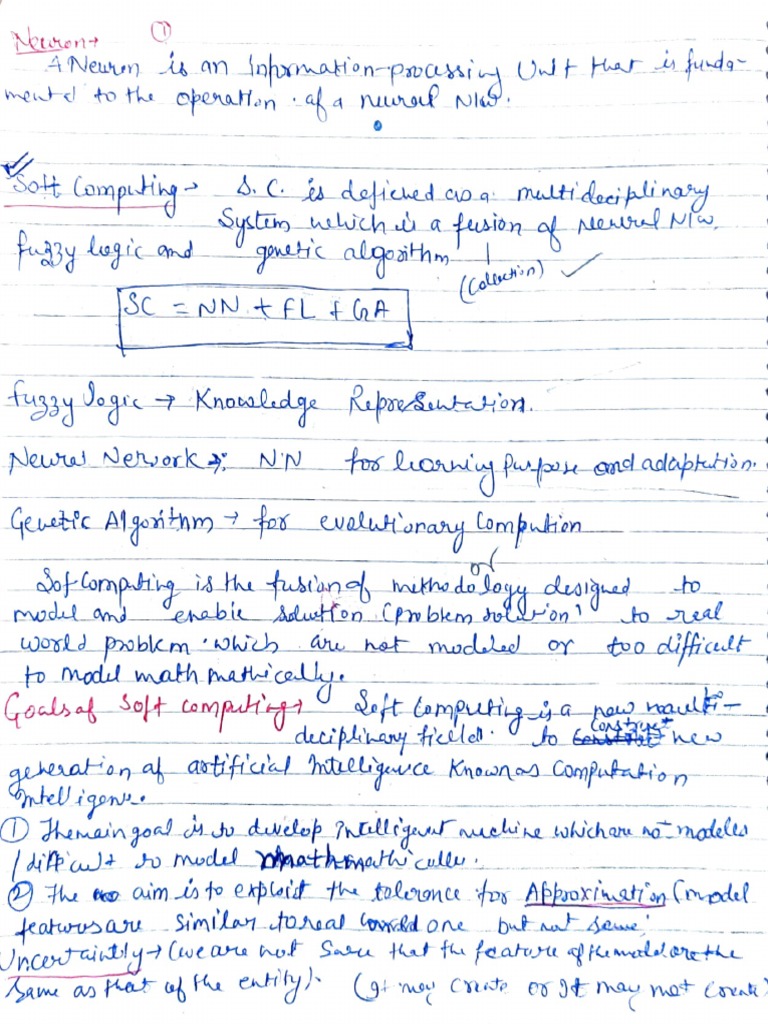 ①
Neuron→
A Neuron is an Information-processing Unit that is funda-
mental to the operation of a neural N/w.
Soft Computing→ S.C. is defined as a multideciplinary
System which is a fusion of Neural N/w.
fuzzy logic and genetic algorithm
(Collection)
SC = NN + FL + GA
fuzzy logic → Knowledge Representation.
Neural Network →: NN for learning purpose and adaptution.
Genetic Algorithm → for evolutionary Compution
or
Soft Computing is the fusion of methodology designed to
model and enable solution (problem solution) to real
world problem which are not modeled or too difficult
to model math mathically.
Goals of Soft computing→ Soft Computing is a new multi-
deciplinary field. to construct new
generation of artificial Intelligence Known as Computation
Intelligence.
① The main goal is to develop Intelligent machine which are not modeles
/ difficult to model mathmathically.
② The aim is to exploit the tolerence for Approximation (model
features are similar to real world one but not same.
Uncertaintly→ (we are not Sure that the feature of the model are the
Same as that of the entity). (It may Create or It may not Create)